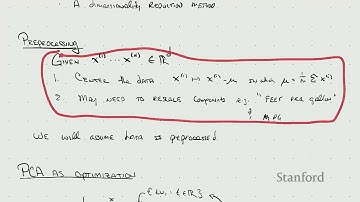 A dimensionality Reduction method.
Preprocessing
Given x⁽¹⁾ ... x⁽ⁿ⁾ ∈ ℝᵈ
1. Center the data x⁽ⁱ⁾ ↦ x⁽ⁱ⁾ - μ in which μ = 1/n Σ x⁽ⁱ⁾
2. May need to rescale components e.g. "Feet per gallon"
& MPG
We will assume data is preprocessed.
PCA as optimization
Stanford
{ αu₁ : α ∈ ℝ }